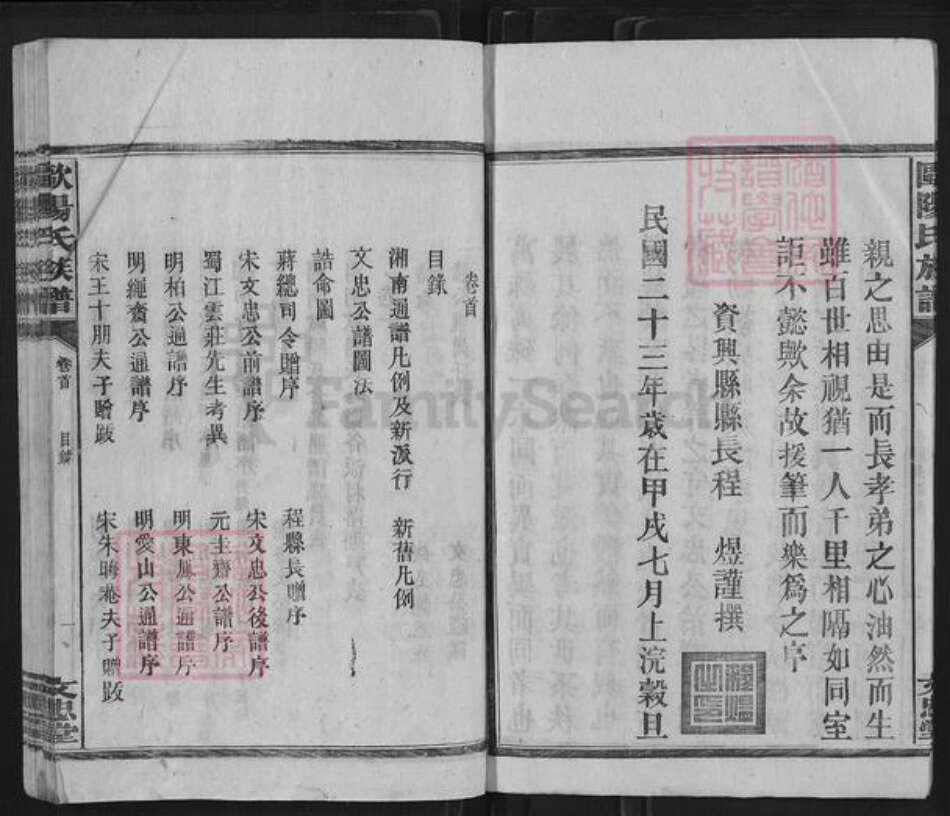 親之思由是而長孝弟之心油然而生
雖百世相視猶一人千里相隔如同室
詎不懿歟余故援筆而樂爲之序
資興縣縣長程　煜謹撰
民國二十三年歲在甲戌七月上浣穀旦
卷首
目錄
湘南通譜凡例及新派行　新舊凡例
文忠公譜圖法
誥命圖
蔣總司令贈序　程縣長贈序
宋文忠公前譜序　宋文忠公後譜序
蜀江雲莊先生考異　元圭齋公譜序
明柏公通譜序　明東鳳公通譜序
明繩齋公通譜序　明愛山公通譜序
宋王十朋夫子贈跋　宋朱晦菴夫子贈跋
歐陽氏族譜
卷首
目錄
一
文忠堂
歐陽氏族譜
文忠堂
FamilySearch